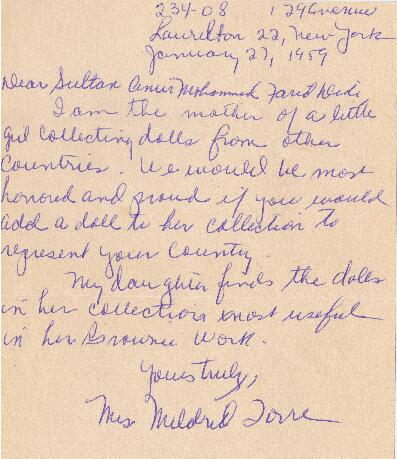 234-08 129 Avenue
Laurelton 22, New York
January 27, 1959
Dear Sultan Amir Mohammed Farid Didi
I am the mother of a little
girl collecting dolls from other
Countries. We would be most
honored and proud if you would
add a doll to her collection to
represent your Country.
My daughter finds the dolls
in her collection most useful
in her Brownie Work.
Yours truly,
Mrs. Mildred Torre